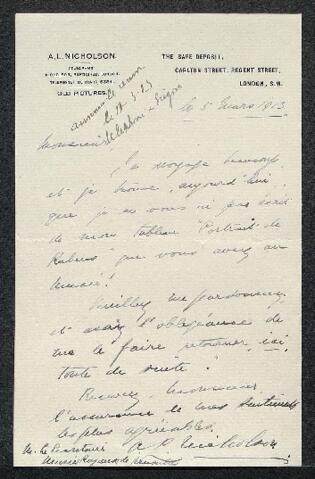 A.L. NICHOLSON.
OLD PICTURES.
THE SAFE DEPOSIT,
CARLTON STREET, REGENT STREET,
LONDON, S.W.
le 5 Mars 1913
Monsieur
J'ai voyagé beaucoup
et je trouve aujourd'hui
que je ne vous ai pas écrit
de mon tableau "Portrait de
Rubens" que vous avez au
Musée!
Veuillez me pardonner,
et avoir l'obligeance de
me le faire retourner ici
toute de suite!
Recevez, Monsieur,
l'assurance de mes sentiments
les plus agréables.
A L Nicholson.
M. le Secretaire
Musée Royaux de